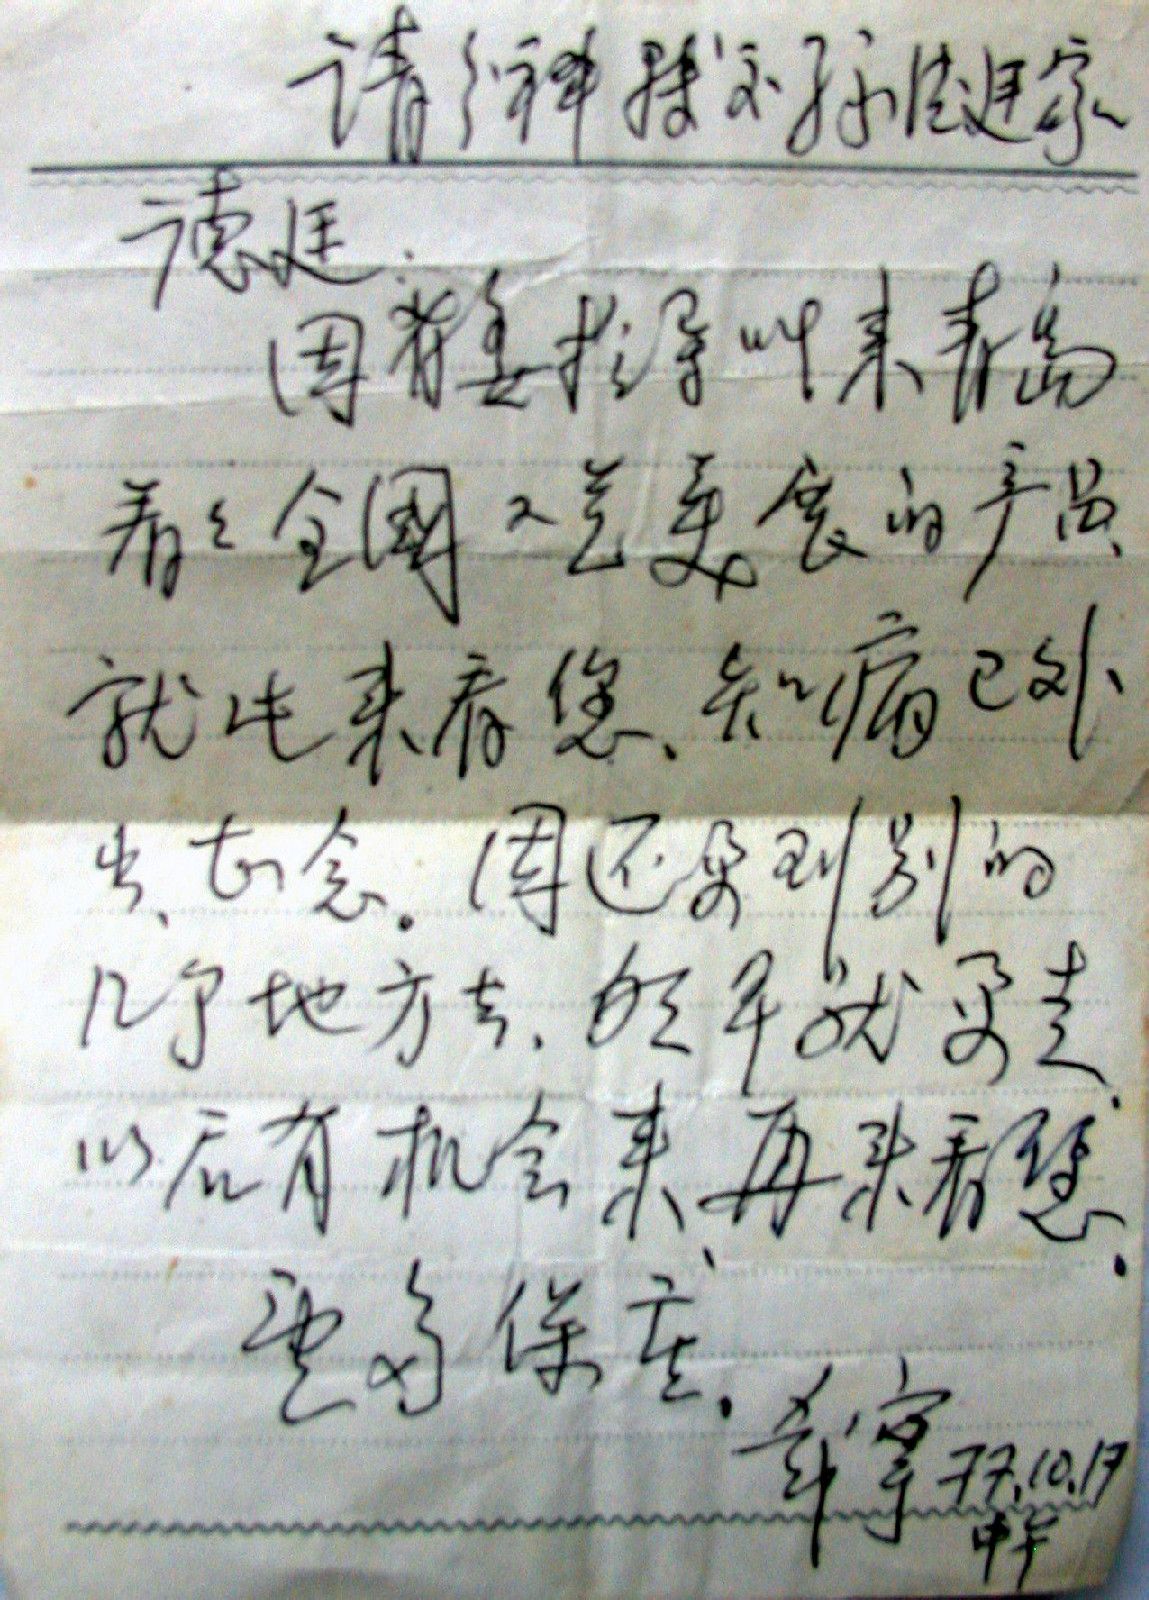 请 转交孙德廷家
德廷.
因有 来青岛
看之全国工艺美展的产品、
就此来看您、知病已外
出、甚念。因还要到别的
几个地方去、明早就要走、
以后有机会来再来看您、
望多保重、
77.10.17
中午